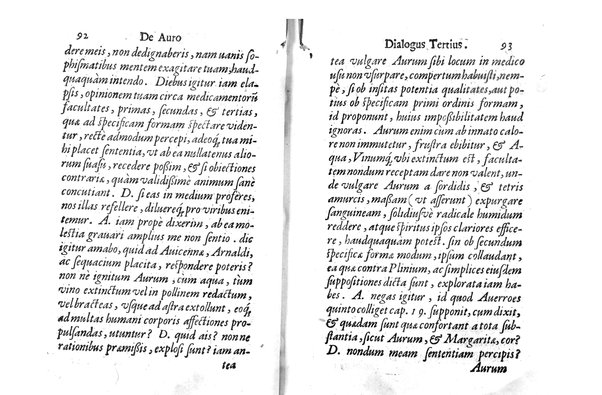 92 De Auro
dere meis, non dedignaberis, nam uanis so-
phismatibus mentem exagitare tuam, haud-
quaquam intendo. Diebus igitur iam ela-
psis, opinionem tuam circa medicamentorũ
facultates, primas, secundas, & tertias,
quæ ad specificam formam spectare viden-
tur, rectè admodum percepi, adeoq́; tua mi-
hi placet sententia, vt ab ea nullatenus alio-
rum suasu, recedere possim, & si obiectiones
contrariæ, quàm validissimè animum sanè
concutiant. D. si eas in medium proferes,
nos illas refellere, diluereq́; pro viribus eni-
temur. A. iam propè dixerim, ab ea mo-
lestia grauari amplius me non sentio. dic
igitur amabo, quid ad Auicennæ, Arnaldi,
ac sequacium placita, respondere poteris?
non nè ignitum Aurum, cùm aqua, tùm
vino extinctum vel in pollinem redactum,
vel bracteas, vsque ad astra extollunt, eoq́;
ad multas humani corporis affectiones pro-
pulsandas, utuntur? D. quid ais? non ne
rationibus præmissis, explosi sunt? iam an-
tea
Dialogus Tertius. 93
tea vulgare Aurum sibi locum in medico
usu non vsurpare, compertum habuisti, nem-
pè, si ob insitas potentia qualitates, aut po-
tius ob specificam primi ordinis formam,
id proponunt, huius impossibilitatem haud
ignoras. Aurum enim cum ab innato calo-
re non immutetur, frustra ebibitur, & A-
qua, Vinumq́; vbi extinctum est, faculta-
tem nondum receptam dare non valent, un-
de vulgare Aurum a sordidis, & tetris
amurcis, massam (vt asserunt) expurgare
sanguineam, solidiusvè radicale humidum
reddere, atque spiritus ipsos clariores effice-
re, haudquaquam potest. sin ob secundum
specificæ formæ modum, ipsum collaudant,
ea quæ contra Plinium, ac simplices eiusdem
suppositiones dicta sunt, explorata iam ha-
bes. A. negas igitur, id quod Auerroes
quinto colliget cap. 19. supponit, cum dixit,
& quædam sunt quæ confortant a tota sub-
stantia, sicut Aurum, & Margaritæ, cor?
D. nondum meam sententiam percipis?
Aurum